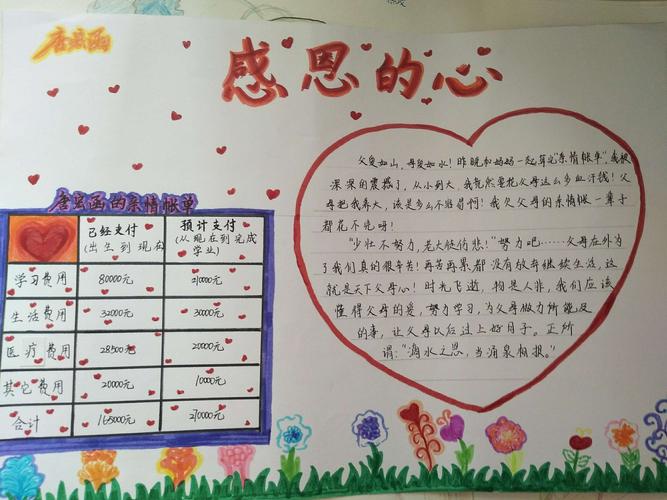 唐宏函
感恩的心
唐宏函的亲情帐单
已经支付 预计支付
(出生到现在) (从现在到完成
学业)
学习费用 80000元 210000元
生活费用 32000元 30000元
医疗费用 28500元 20000元
其它费用 20000元 10000元
合计 165000元 270000元
父爱如山，母爱如水！昨晚和妈妈一起算完“亲情帐单”，我被
深深的震撼了，从小到大，我竟然要花父母这么多血汗钱！父
母把我养大，该是多么不容易啊！我欠父母的亲情帐一辈子
都花不完呀！
“少壮不努力，老大徒伤悲！”努力吧……父母在外为
了我们真的很辛苦！再苦再累都没有放弃继续生活，这
就是天下父母心！时光飞逝，物是人非，我们应该
懂得父母的爱，努力学习，为父母做力所能及
的事，让父母以后过上好日子。正所
谓：“滴水之恩，当涌泉相报。”